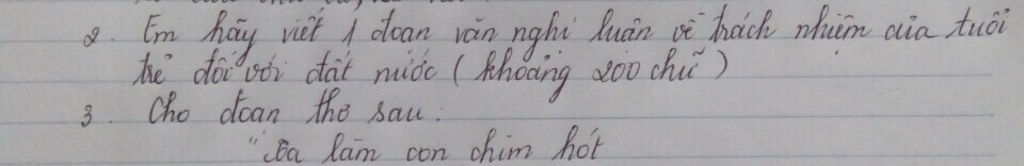 2. Em hãy viết 1 đoạn văn nghị luận về trách nhiệm của tuổi
trẻ đối với đất nước (khoảng 200 chữ)
3. Cho đoạn thơ sau:
"Ta làm con chim hót